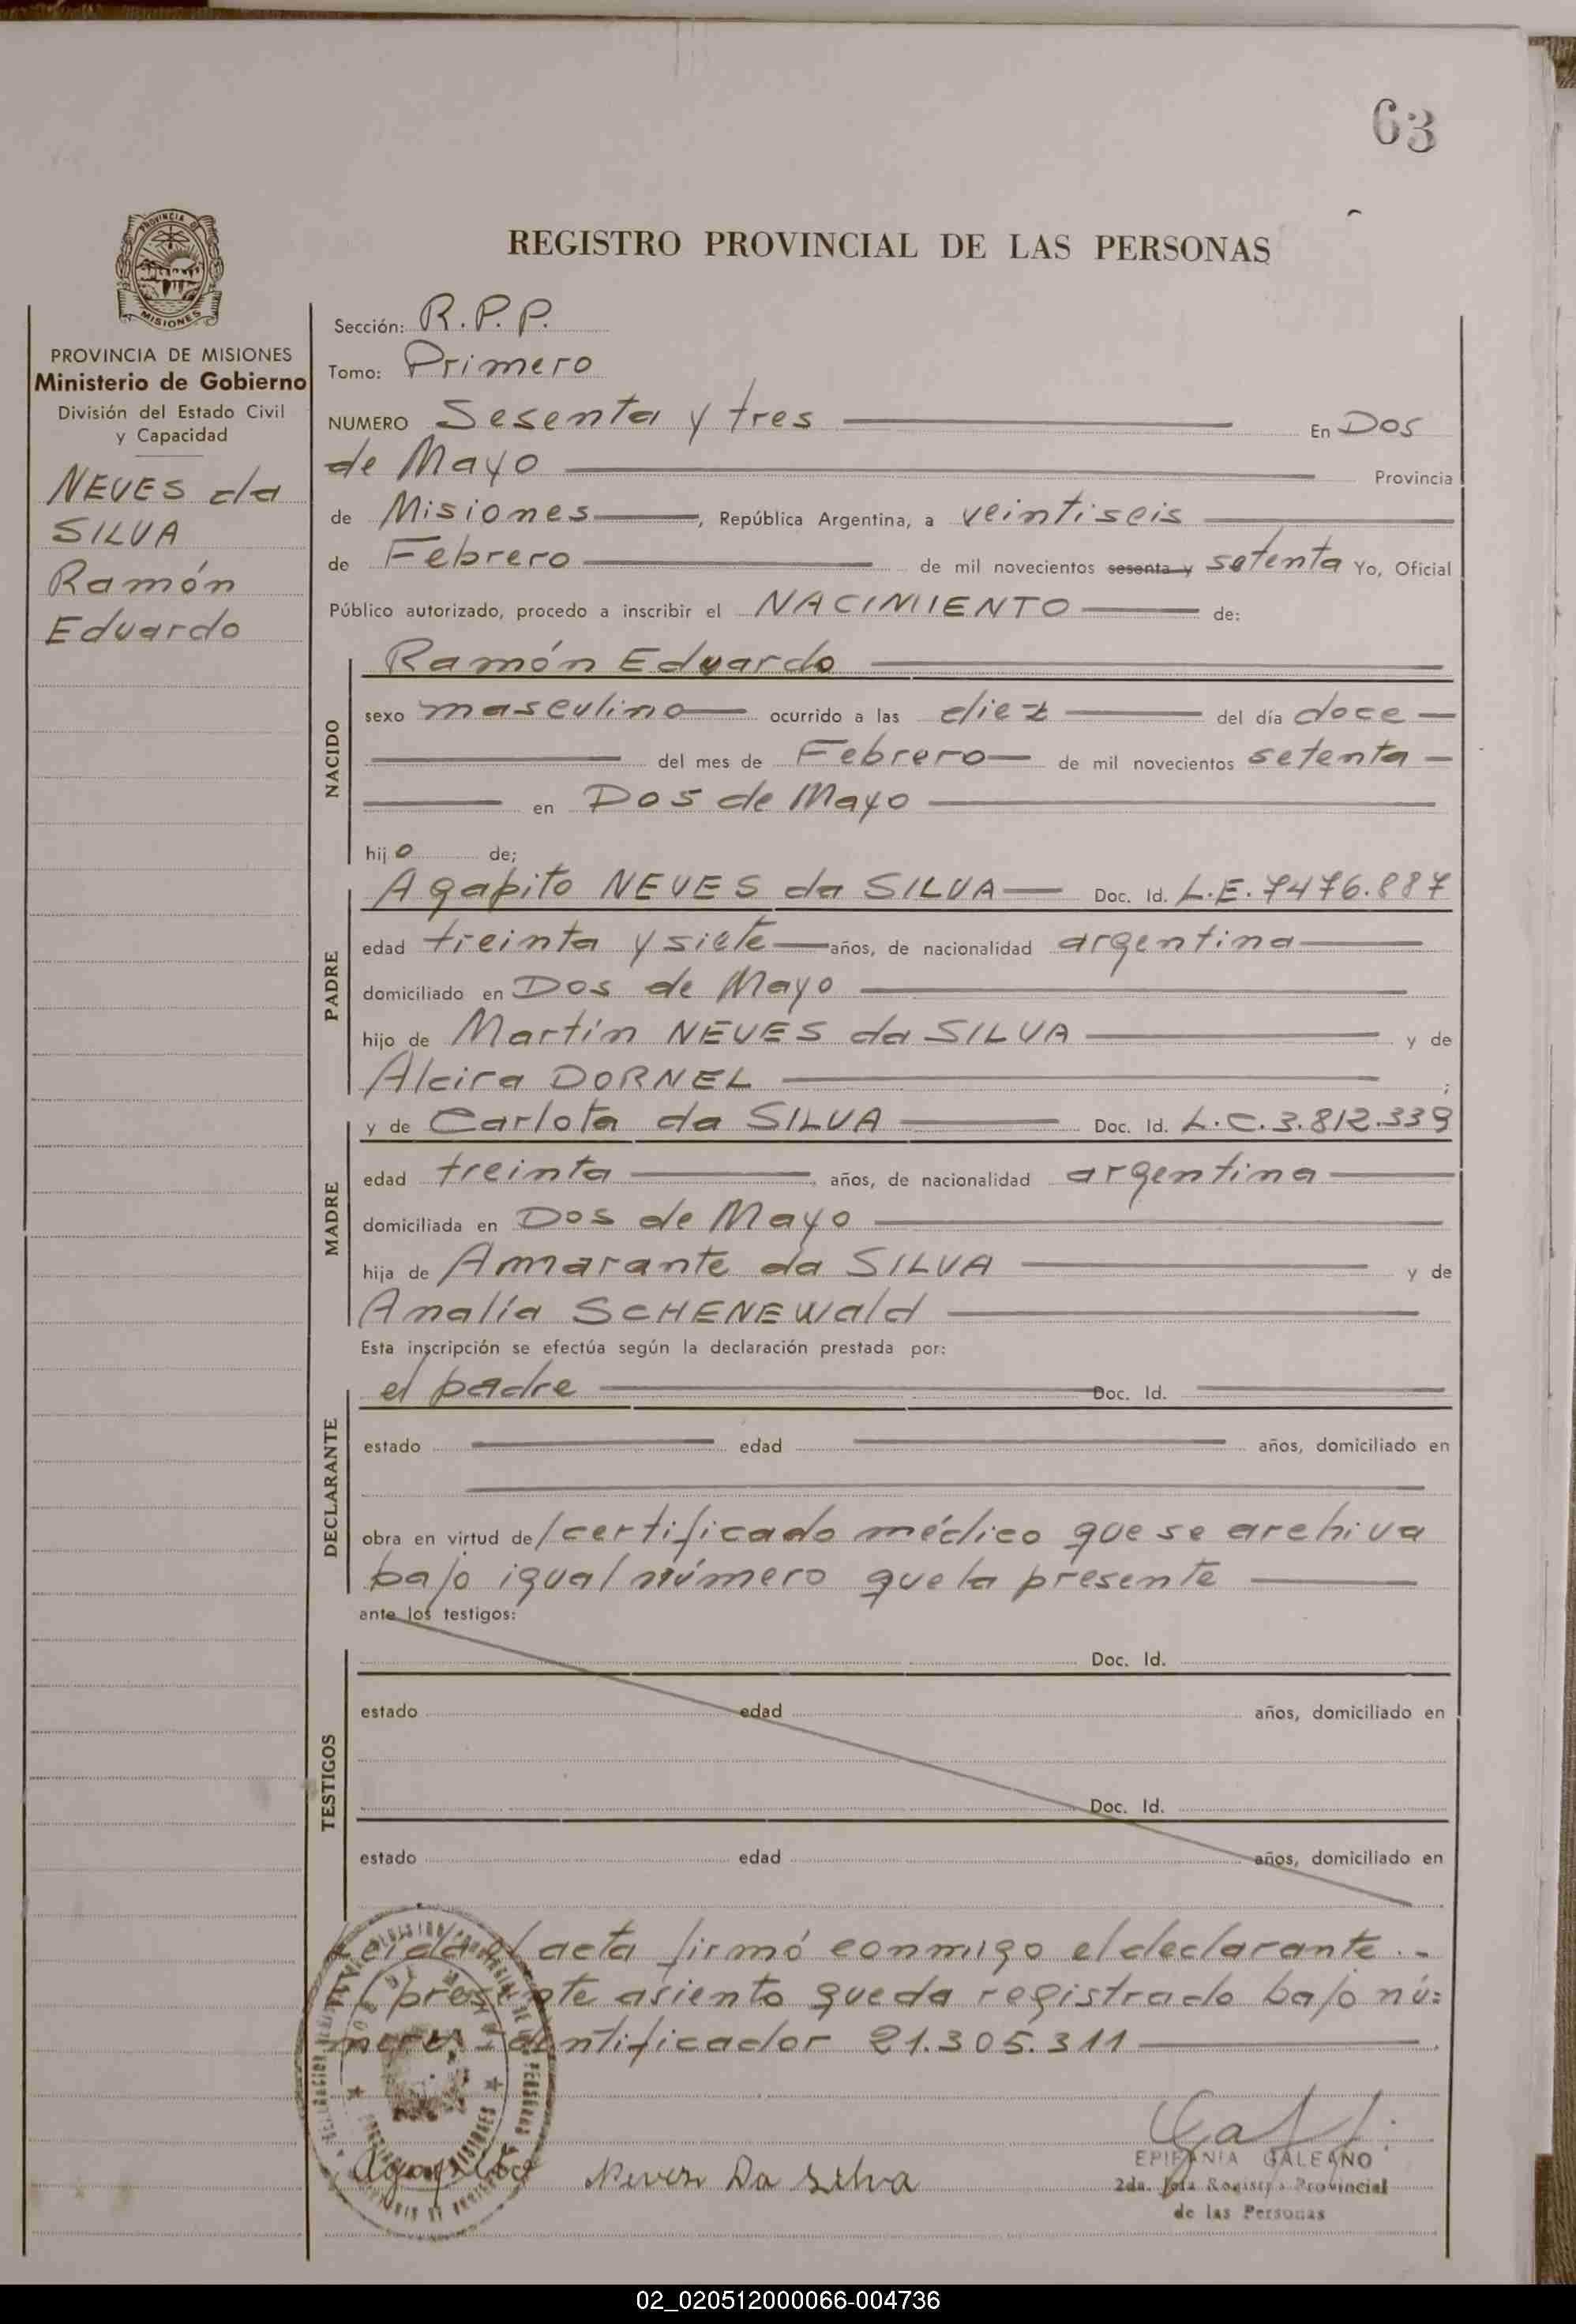 63
PROVINCIA DE
MISIONES
REGISTRO PROVINCIAL DE LAS PERSONAS
PROVINCIA DE MISIONES
Ministerio de Gobierno
División del Estado Civil
y Capacidad
NEVES da
SILVA
Ramón
Eduardo
Sección: R.P.P.
Tomo: Primero
NUMERO Sesenta y tres En Dos
de Mayo Provincia
de Misiones, República Argentina, a veintiseis
de Febrero de mil novecientos sesenta y setenta Yo, Oficial
Público autorizado, procedo a inscribir el NACIMIENTO de:
NACIDO
Ramón Eduardo
sexo masculino ocurrido a las diez del día doce
del mes de Febrero de mil novecientos setenta
en Dos de Mayo
hijo de;
PADRE
Agapito NEVES da SILVA Doc. Id. L.E. 7476.887
edad treinta y siete años, de nacionalidad argentina
domiciliado en Dos de Mayo
hijo de Martín NEVES da SILVA y de
Alcira DORNEL ;
MADRE
y de Carlota da SILVA Doc. Id. L.C. 3.812.339
edad treinta años, de nacionalidad argentina
domiciliada en Dos de Mayo
hija de Amarante da SILVA y de
Analía SCHENEWald
Esta inscripción se efectúa según la declaración prestada por:
DECLARANTE
el padre Doc. Id.
estado edad años, domiciliado en
obra en virtud de/certificado médico que se archiva
bajo igual número que la presente
ante los testigos:
TESTIGOS
Doc. Id.
estado edad años, domiciliado en
Doc. Id.
estado edad años, domiciliado en
Leída el acta firmó conmigo el declarante.-
El presente asiento queda registrado bajo nú=
mero identificador 21.305.311.
Agapito Neves Da Silva
EPIFANIA GALEANO
2da. Jefa Registro Provincial
de las Personas
02_020512000066-004736